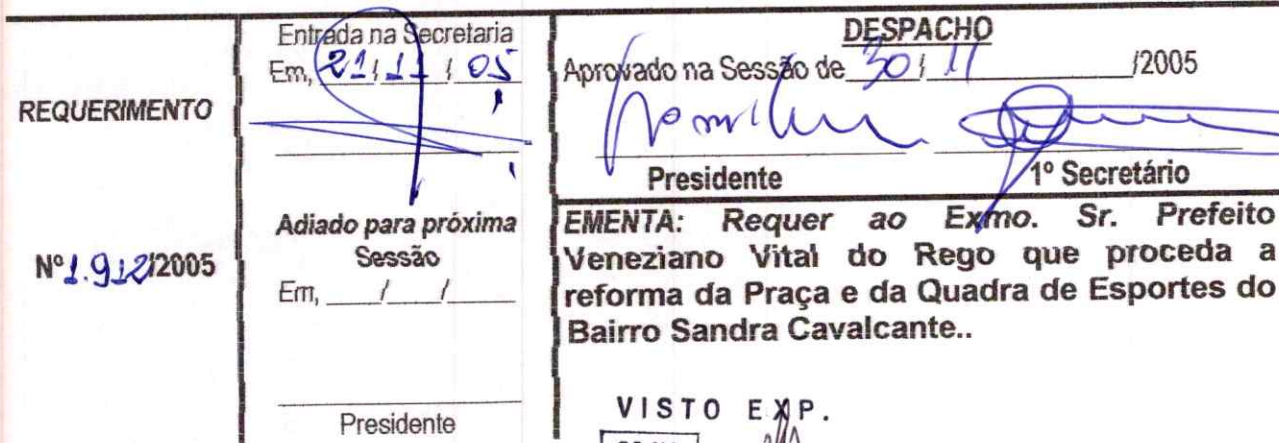 REQUERIMENTO
Nº 1.912/2005
Entrada na Secretaria
Em, 21/11/05
Adiado para próxima
Sessão
Em, ____/____/____
Presidente
DESPACHO
Aprovado na Sessão de 30/11/2005
Presidente
1º Secretário
EMENTA: Requer ao Exmo. Sr. Prefeito
Veneziano Vital do Rego que proceda a
reforma da Praça e da Quadra de Esportes do
Bairro Sandra Cavalcante..
VISTO EXP.